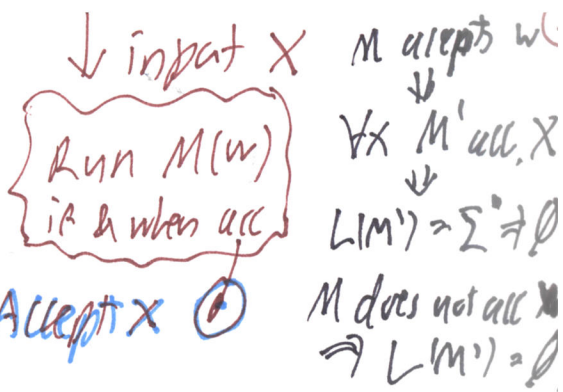 ↓ input X
Run M(w)
if & when acc
Accept X
M accepts w
⇓
∀x M' acc. X
⇓
L(M') = Σ* ≠ ∅
M does not acc
⇒ L(M') = ∅